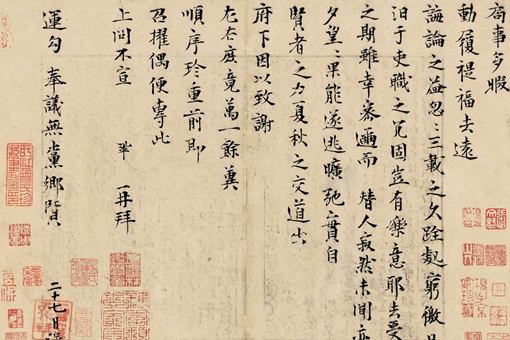 商事多暇
動履禔福去遠
誨論之益忽〻三載之久跧處窮徼日
汨于吏職之冗固豈有樂意耶去受
之期雖幸密邇而替人寂然未聞亦
夕望〻果能遂逃曠弛實自
賢者之力夏秋之交道出
府下因以致謝
左右庶竟萬一餘冀
順序珍重前即
召擢偶便專此
上問不宣 鞏 再拜
運勾奉議無黨鄉賢
二十七日